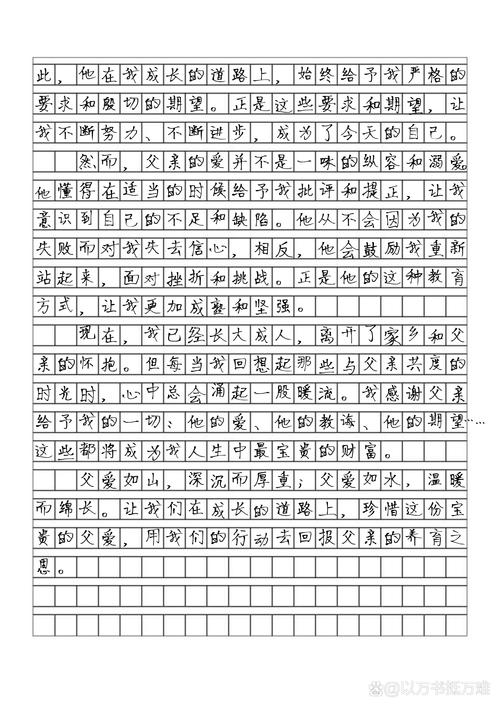 此，他在我成长的道路上，始终给予我严格的
要求和殷切的期望。正是这些要求和期望，让
我不断努力、不断进步，成为了今天的自己。
然而，父亲的爱并不是一味的纵容和溺爱。
他懂得在适当的时候给予我批评和提正，让我
意识到自己的不足和缺陷。他从不会因为我的
失败而对我失去信心，相反，他会鼓励我重新
站起来，面对挫折和挑战。正是他的这种教育
方式，让我更加成熟和坚强。
现在，我已经长大成人，离开了家乡和父
亲的怀抱。但每当我回想起那些与父亲共度的
时光时，心中总会涌起一股暖流。我感谢父亲
给予我的一切：他的爱、他的教诲、他的期望……
这些都将成为我人生中最宝贵的财富。
父爱如山，深沉而厚重；父爱如水，温暖
而绵长。让我们在成长的道路上，珍惜这份宝
贵的父爱，用我们的行动去回报父亲的养育之
恩。
@以万书抵万难